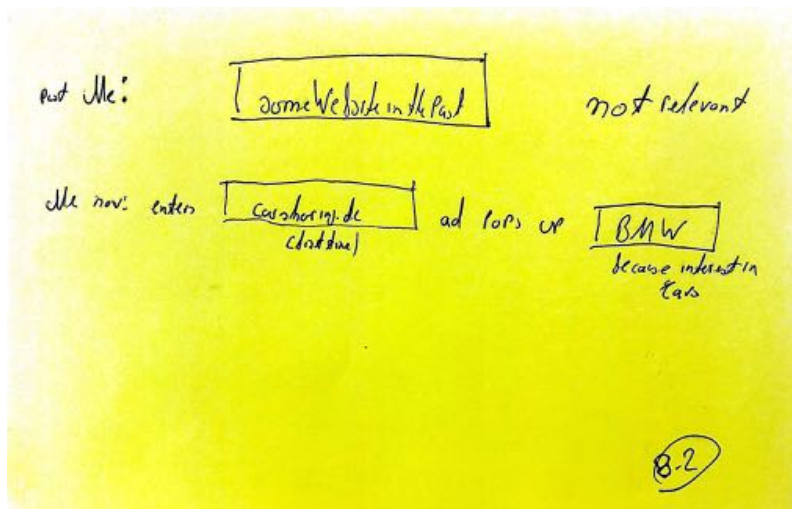 past Me: someWebsite in the Past not relevant
Me now: enters carsharing.de ad pops up BMW
(first time) because interest in
Cars
8.2